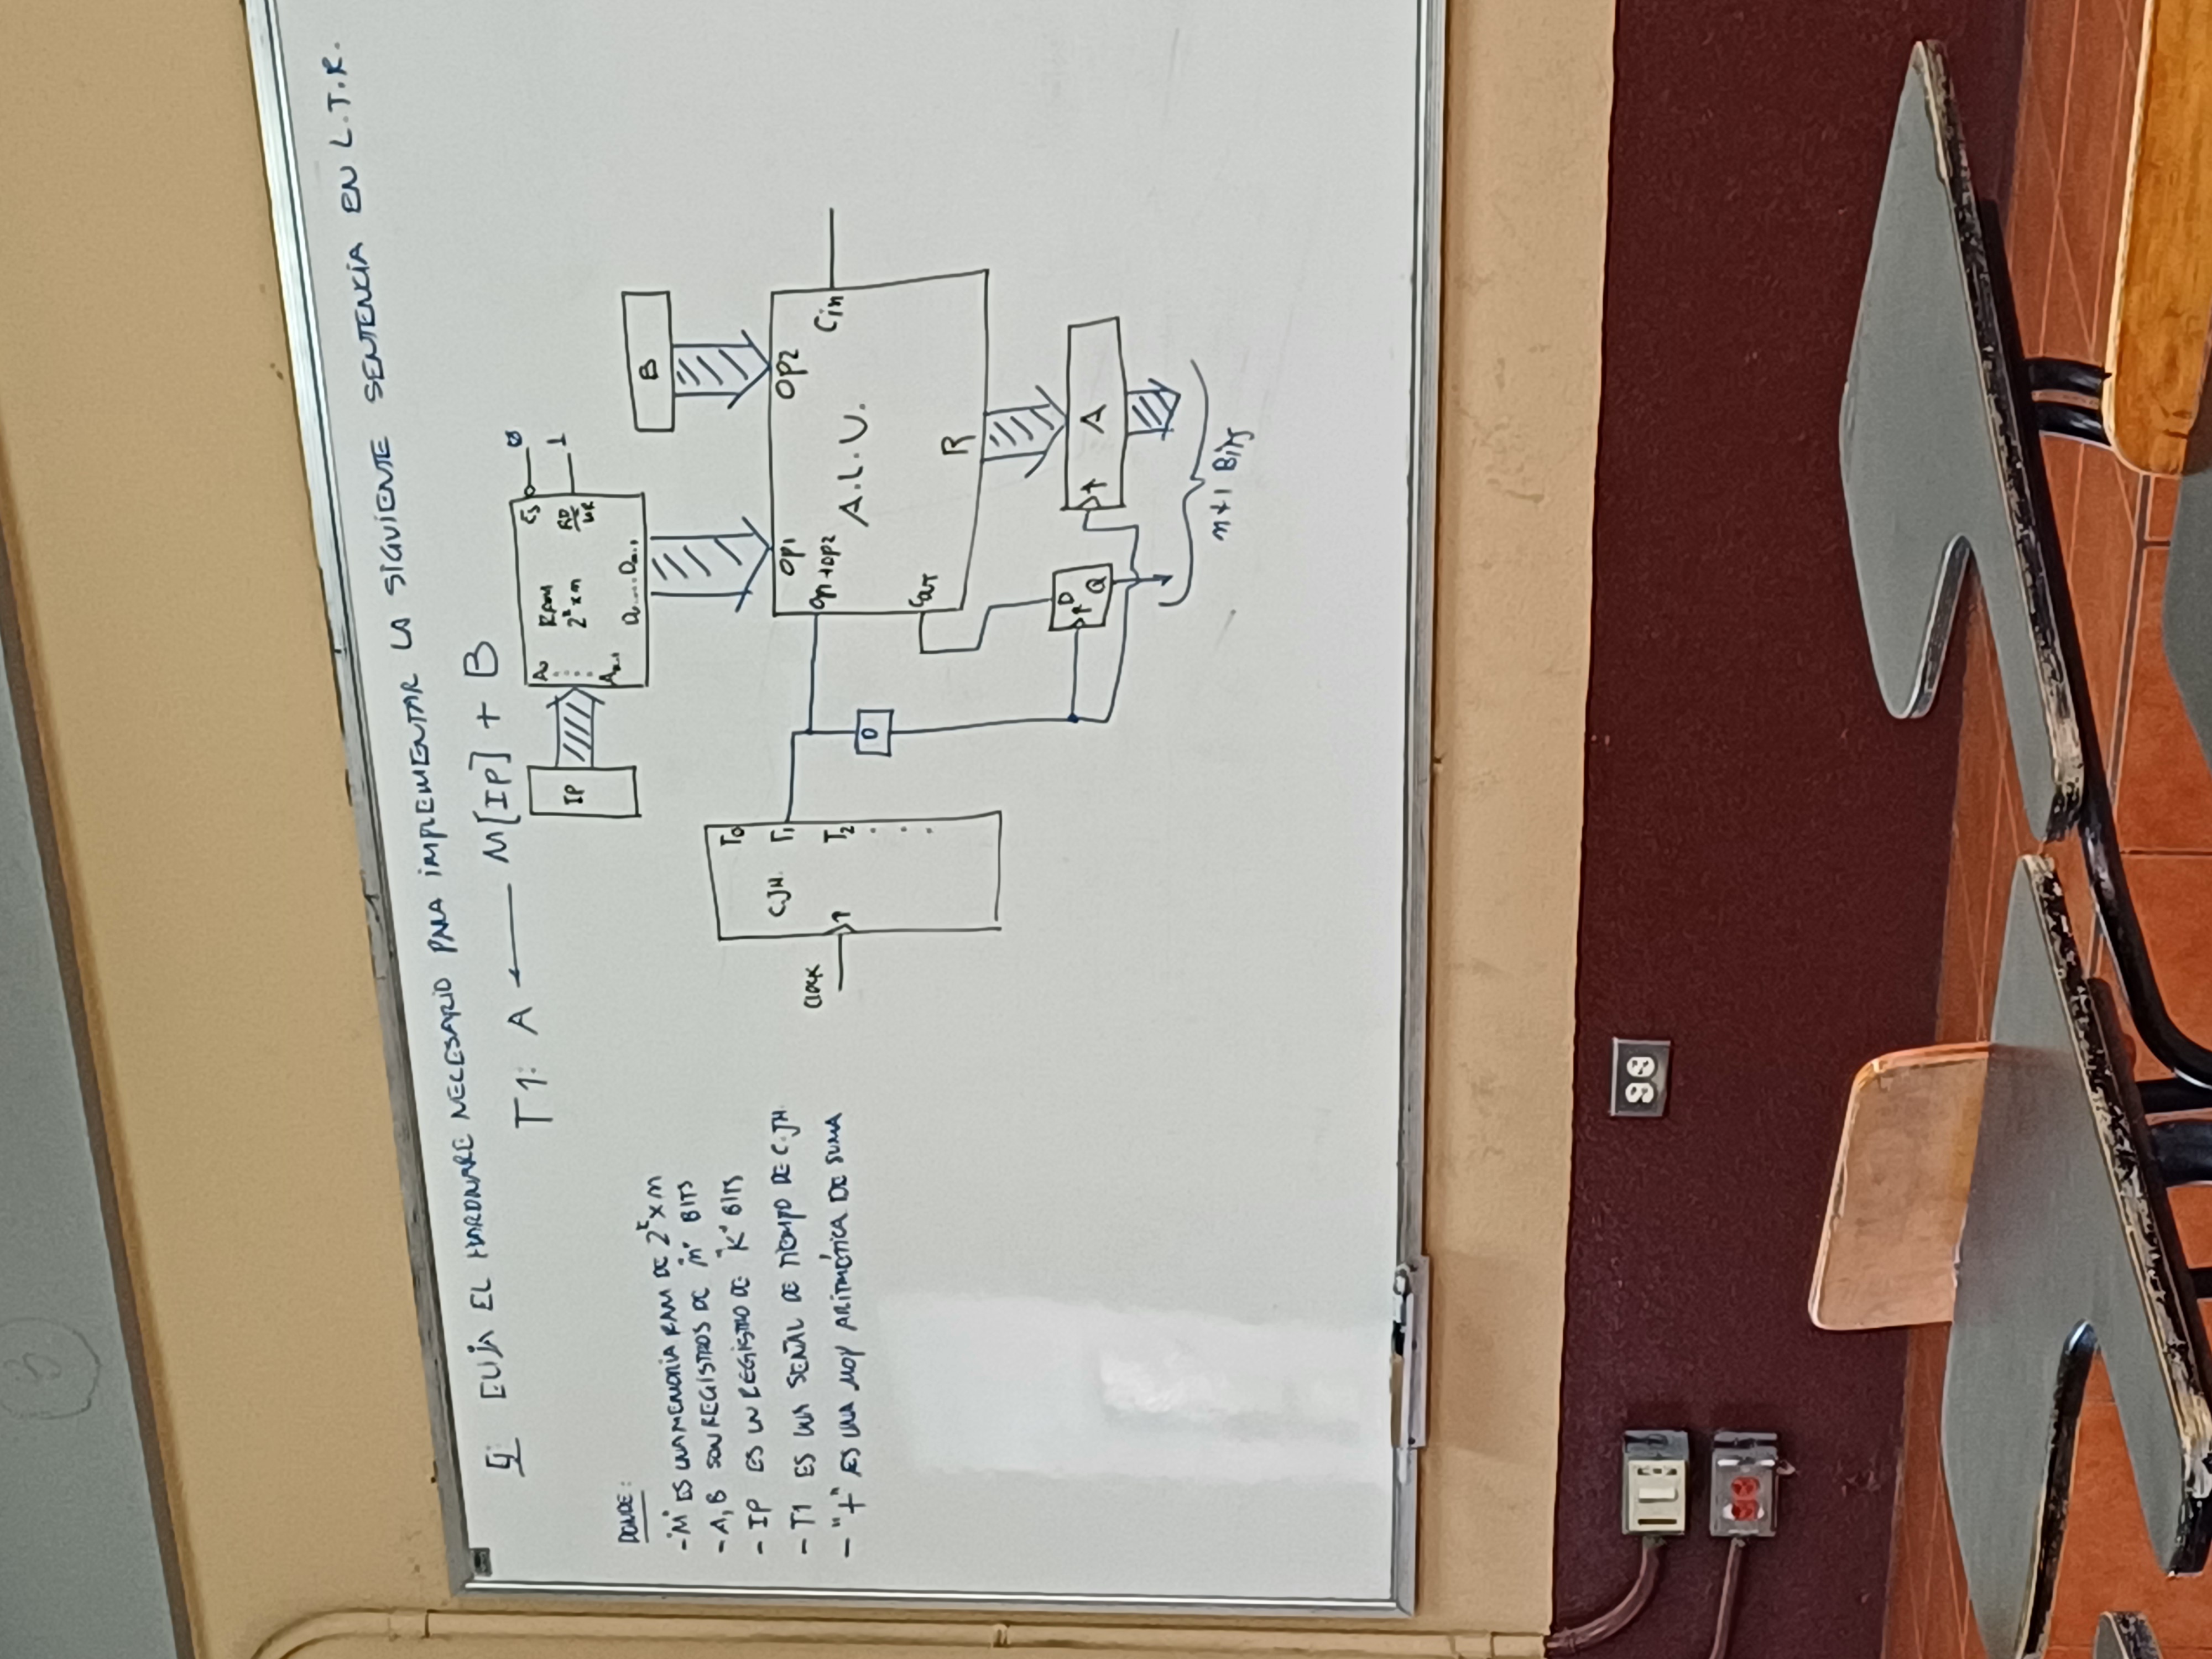 Ej ELIJA EL HARDWARE NECESARIO PARA IMPLEMENTAR LA SIGUIENTE SENTENCIA EN L.T.R.
T1: A ← M[IP] + B
DONDE:
- "M" ES UNA MEMORIA RAM DE 2^k x n
- A, B SON REGISTROS DE "n" BITS
- IP ES UN REGISTRO DE "K" BITS
- T1 ES UNA SEÑAL DE TIEMPO DE C.JH.
- "+" ES UNA μop ARITMÉTICA DE SUMA
IP
A0
RAM
2^k x n
CS
0
RD
WR
1
Ak-1
D0....Dn-1
B
CLOCK
C.JH.
T0
T1
T2
D
Op1
Op2
Op1+Op2
A.L.U.
Cin
Cout
R
D
Q
A
n+1 Bits